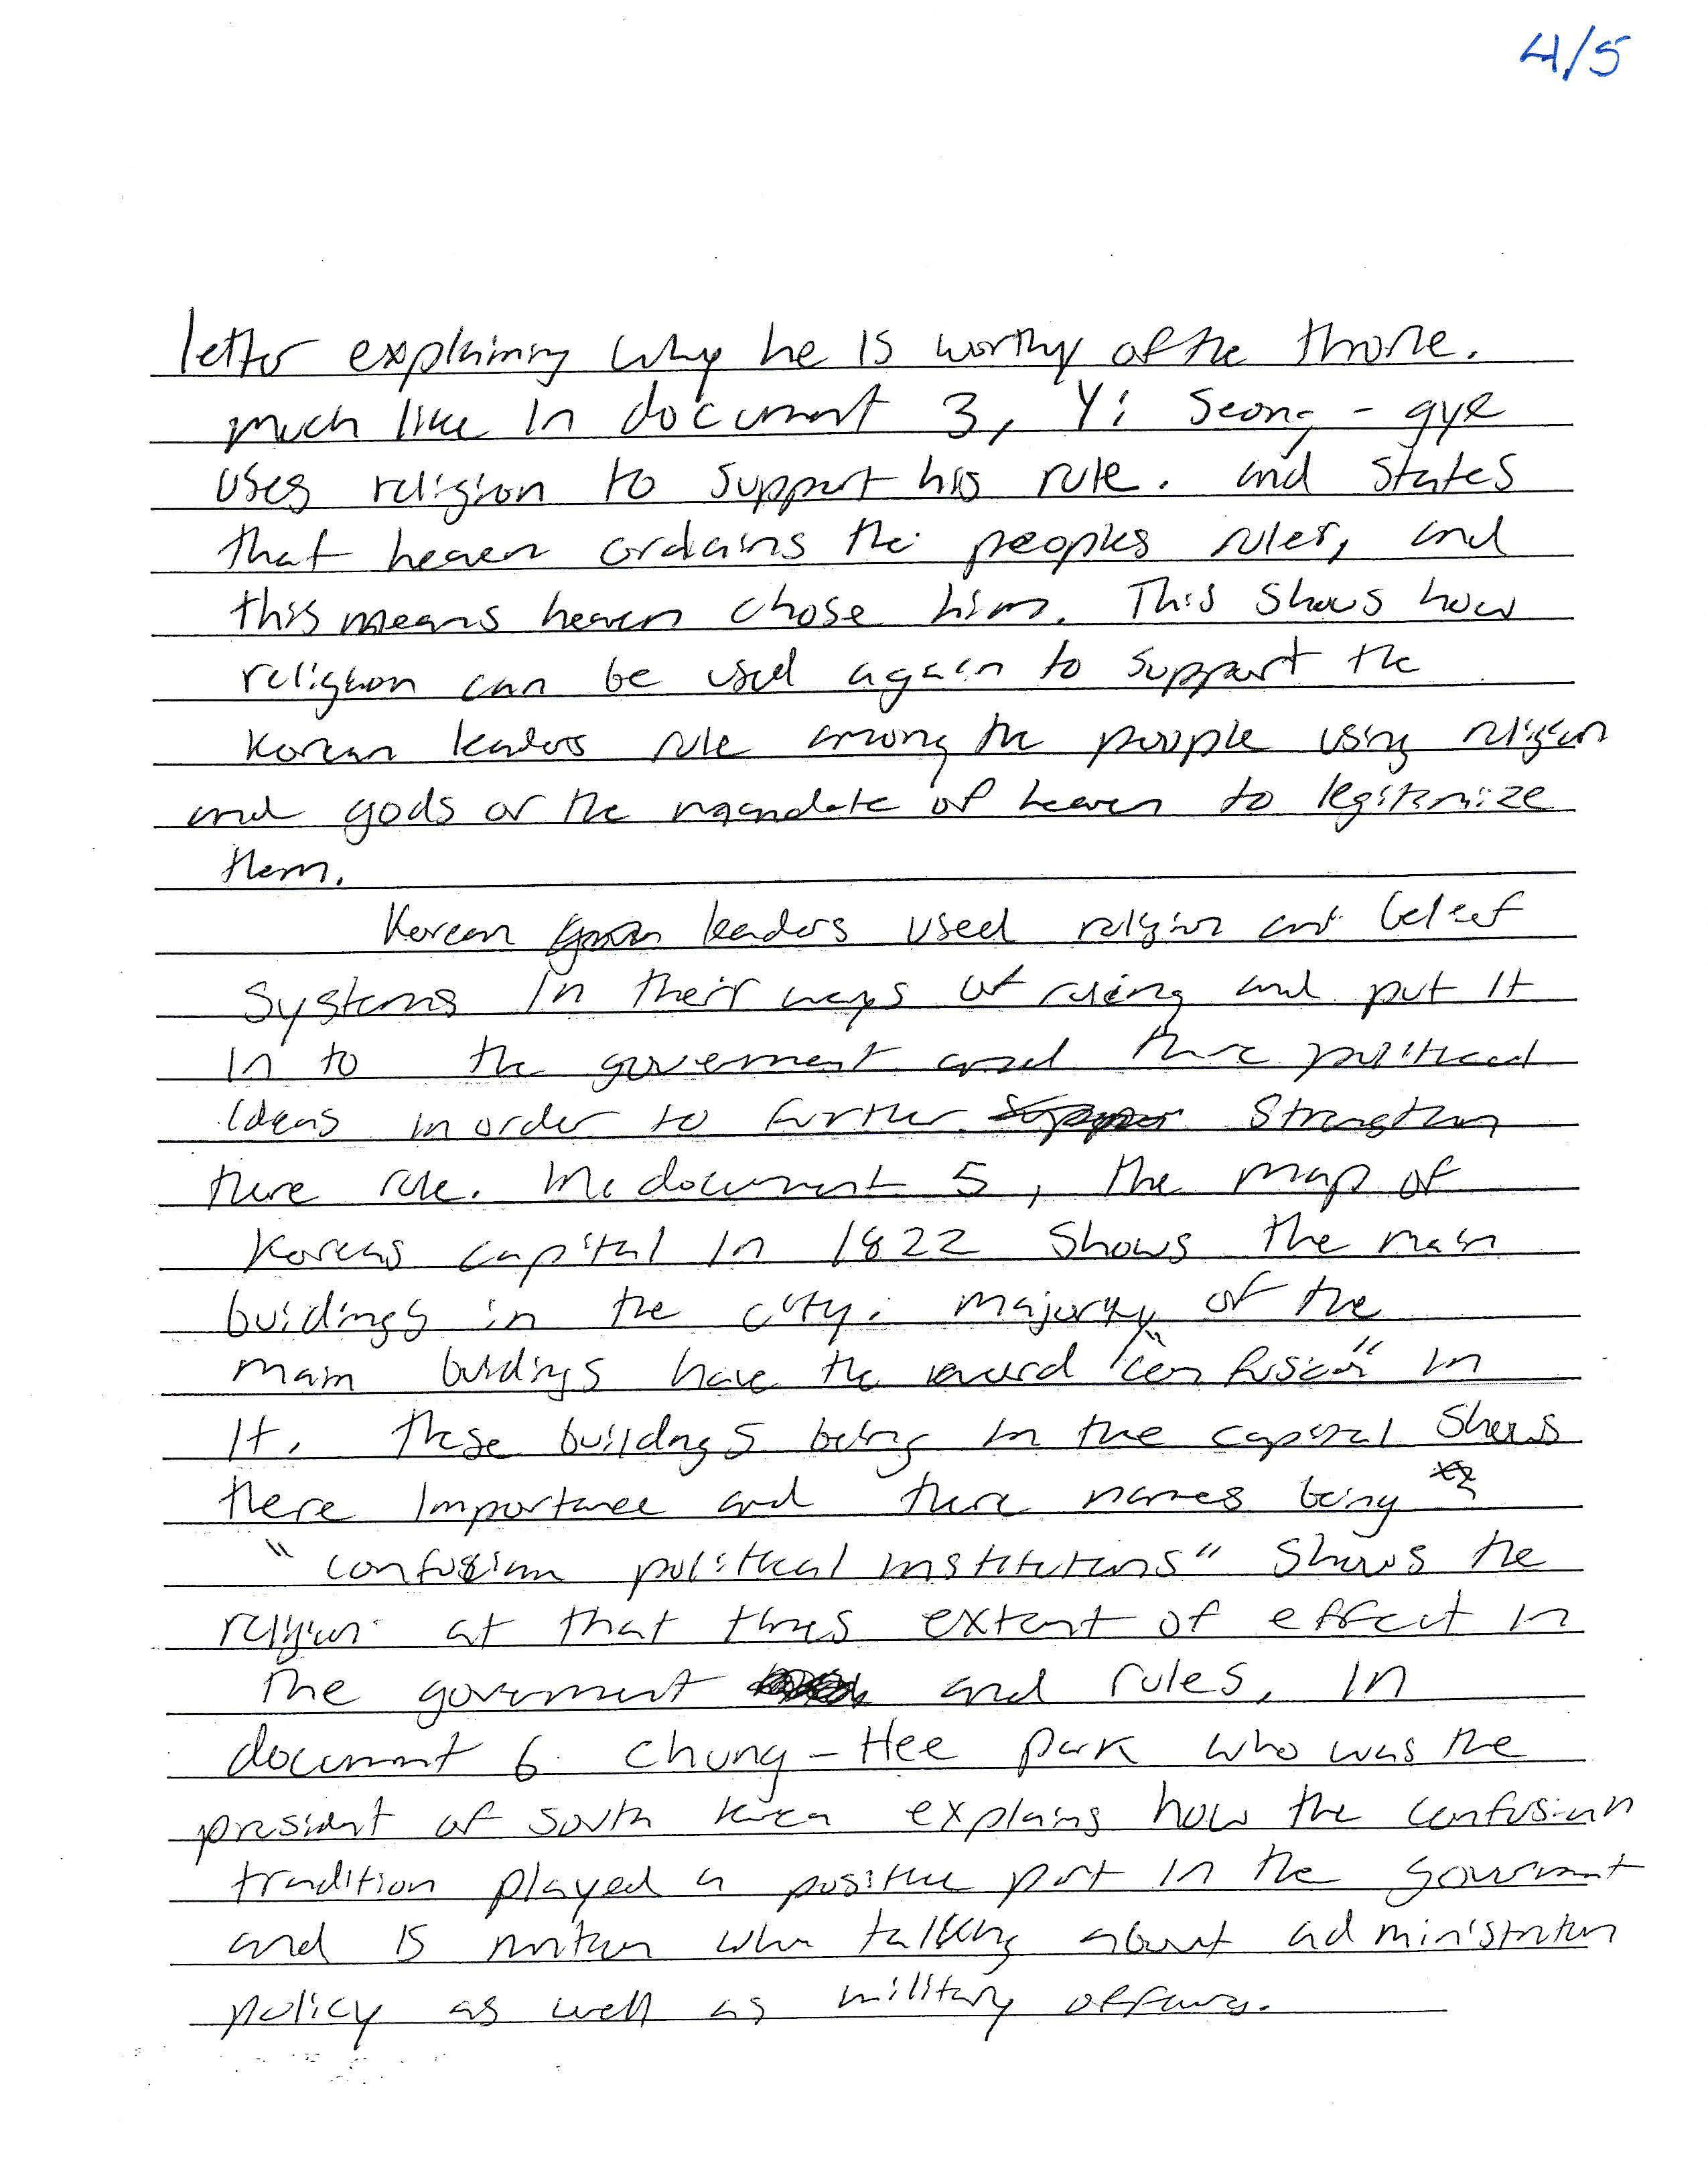 4/5
letter explaining why he is worthy of the throne.
much like in document 3, Yi Seong-gye
uses religion to support his rule. and states
that heaven ordains the peoples ruler, and
this means heaven chose him. This shows how
religion can be used again to support the
Korean leaders rule among the people using religion
and gods or the mandate of heaven to legitimize
them.
Korean leaders used religion and beleef
systems in their ways of ruling and put it
in to the goverment and there political
ideas in order to further strengthen
there rule. In document 5, the map of
Koreas capital in 1822 shows the main
buildings in the city. majority of the
main buildings have the word "confusian" in
it. These buildings being in the capital shows
there importance and there names being
"confusian political institutions" shows the
religion at that times extent of effect in
the goverment and rules. In
document 6 Chung-Hee park who was the
president of South Korea explains how the confusian
tradition played a positive part in the goverment
and is when talking about administration
policy as well as military